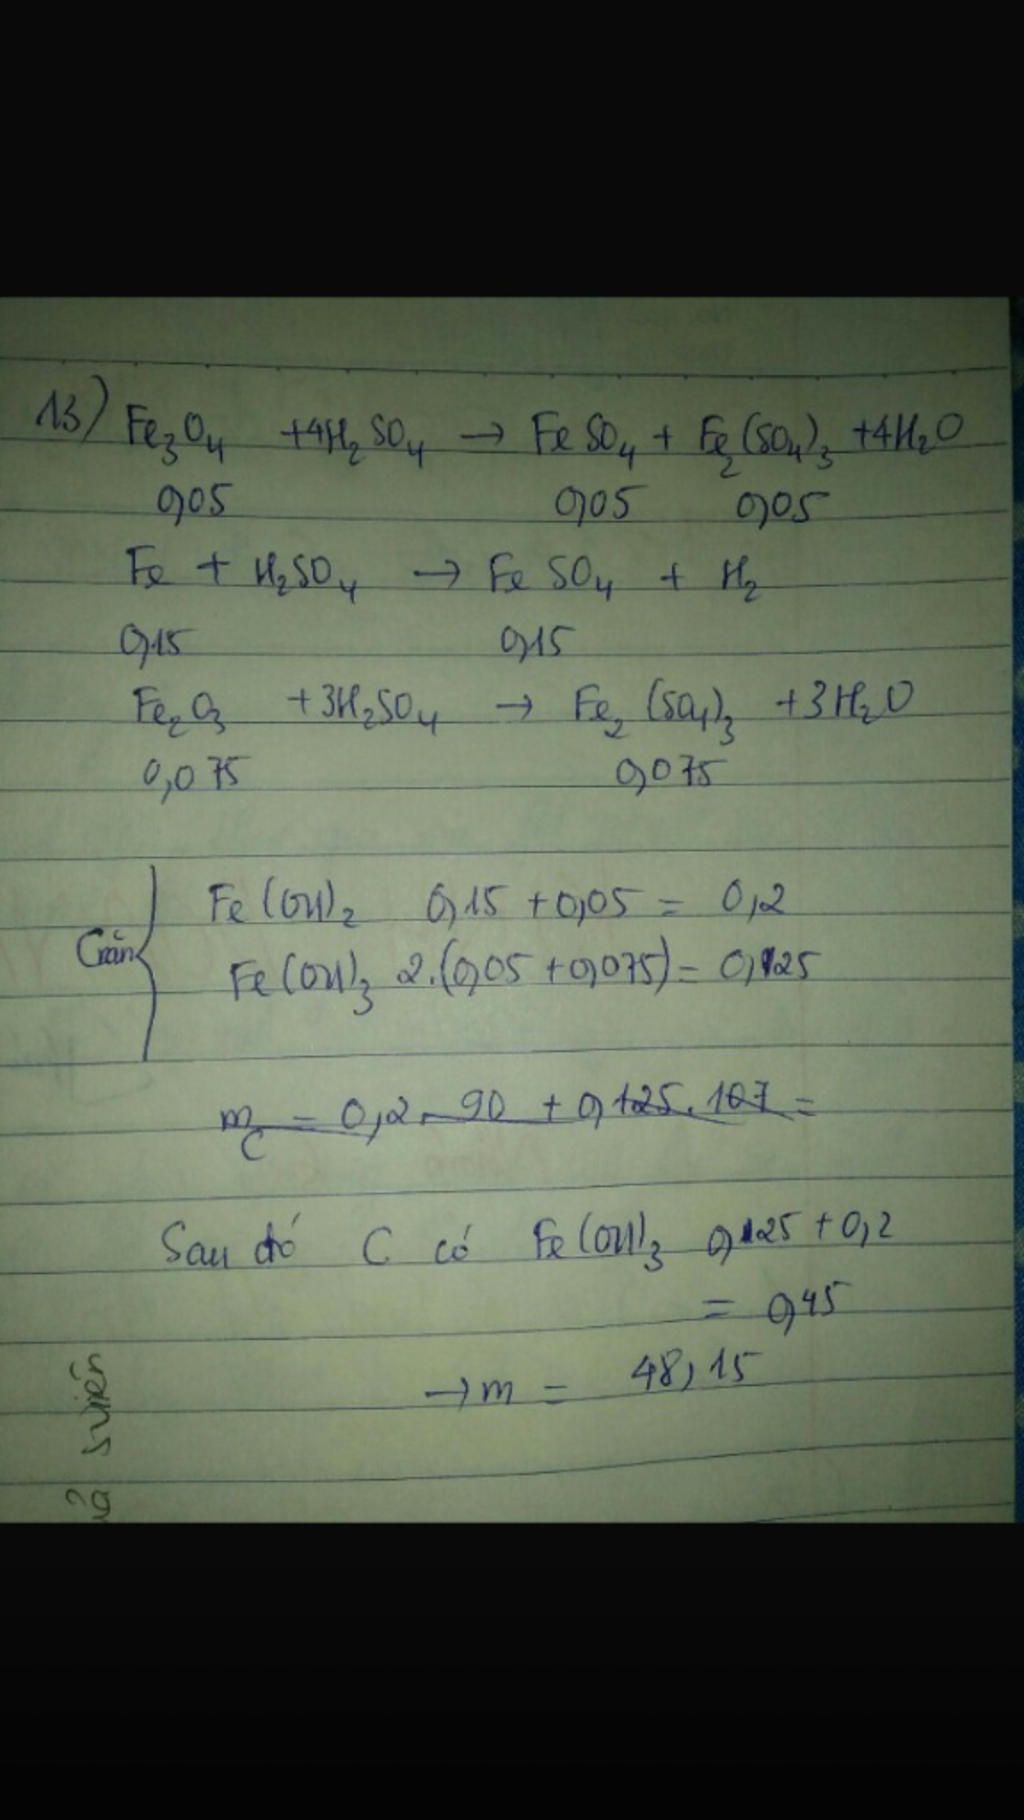 13) Fe₃O₄ + 4H₂SO₄ → FeSO₄ + Fe₂(SO₄)₃ + 4H₂O
0,05 0,05 0,05
Fe + H₂SO₄ → FeSO₄ + H₂
0,15 0,15
Fe₂O₃ + 3H₂SO₄ → Fe₂(SO₄)₃ + 3H₂O
0,075 0,075
Fe(OH)₂ 0,15 + 0,05 = 0,2
Fe(OH)₃ 2.(0,05 + 0,075) = 0,125
m_C = 0,2 . 90 + 0,125 . 107 =
Sau đó C có Fe(OH)₃ 0,125 + 0,2
= 0,45
→ m = 48,15